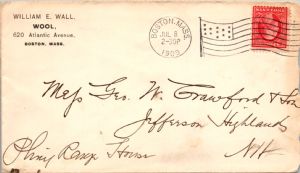 WILLIAM E. WALL,
WOOL,
620 Atlantic Avenue,
BOSTON, MASS.
BOSTON, MASS.
JUL 8
2-30P
1909
Mess Geo. W. Crawford & Son
Jefferson Highlands
N.H.
Pliny Range House